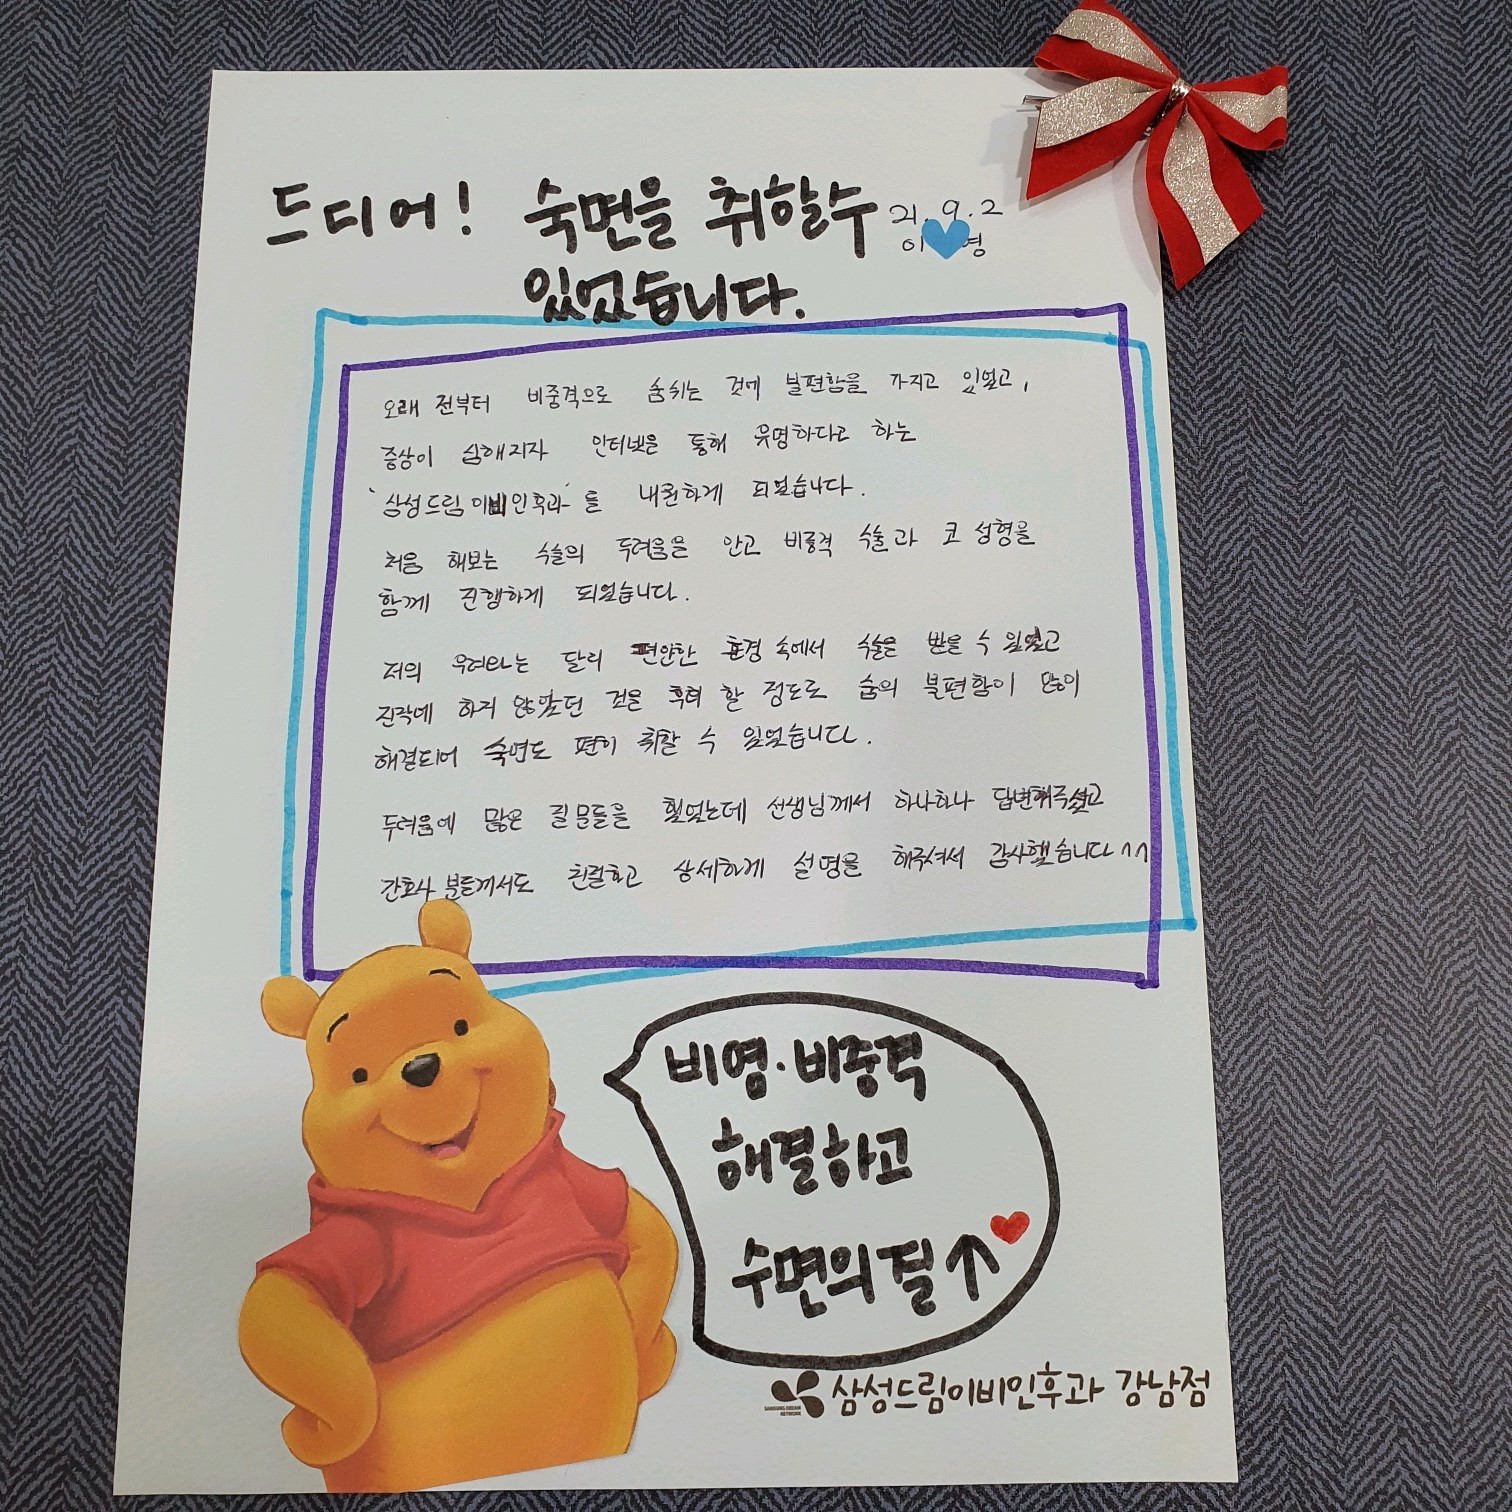 드디어! 숙면을 취할수
있었습니다.
21. 9. 2
이 영
오래 전부터 비중격으로 숨쉬는 것에 불편함을 가지고 있었고,
증상이 심해지자 인터넷을 통해 유명하다고 하는
'삼성드림이비인후과'를 내원하게 되었습니다.
처음 해보는 수술의 두려움을 안고 비중격 수술과 코 성형을
함께 진행하게 되었습니다.
저의 우려와는 달리 편안한 환경 속에서 수술을 받을 수 있었고
진작에 하지 않았던 것을 후회 할 정도로 숨의 불편함이 많이
해결되어 숙면도 편히 취할 수 있었습니다.
두려움에 많은 질문들을 했었는데 선생님께서 하나하나 답변해주셨고
간호사 분들께서도 친절하고 상세하게 설명을 해주셔서 감사했습니다^^
비염·비중격
해결하고
수면의질↑
SAMSUNG DREAM
NETWORK
삼성드림이비인후과 강남점